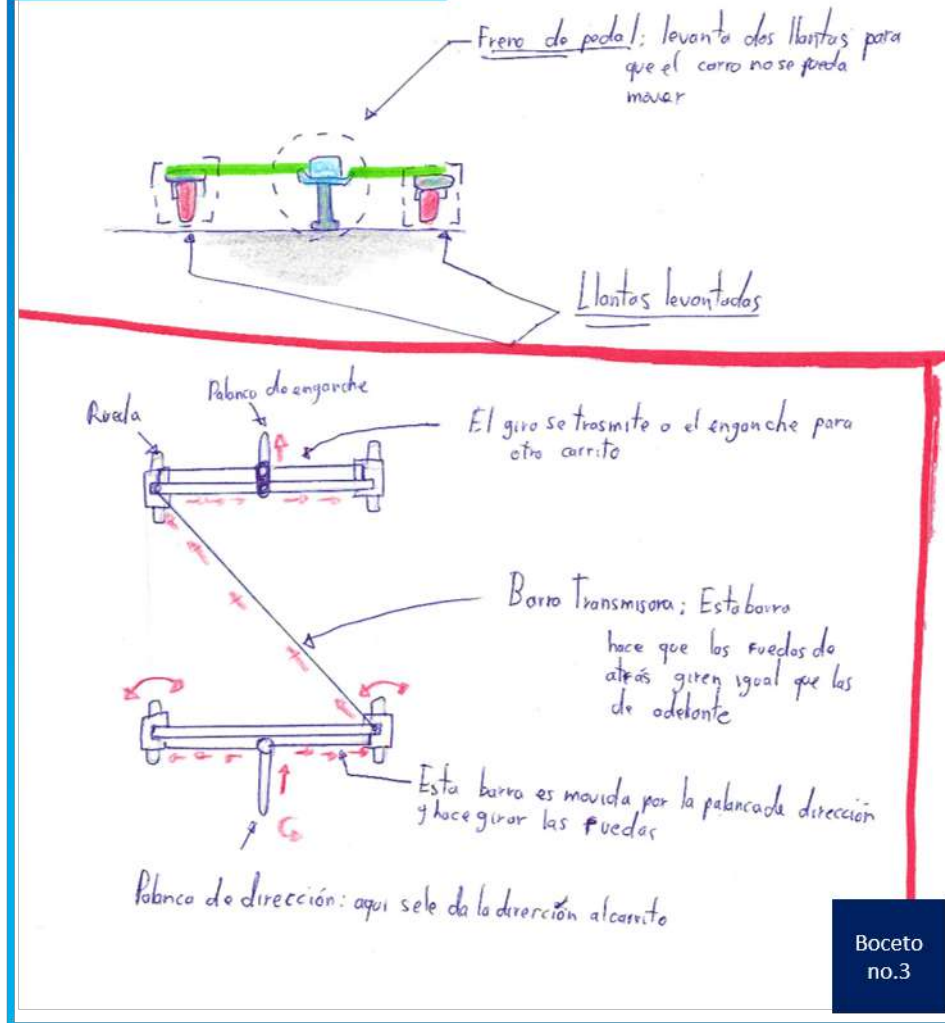 Freno de pedal; levanta dos llantas para
que el carro no se pueda
mover
Llantas levantadas
Rueda
Palanca de enganche
El giro se trasmite a el enganche para
otro carrito
Barra Transmisora; Esta barra
hace que las ruedas de
atrás giren igual que las
de adelante
Esta barra es movida por la palanca de dirección
y hace girar las ruedas
Palanca de dirección: aqui se le da la dirección al carrito
Boceto
no.3